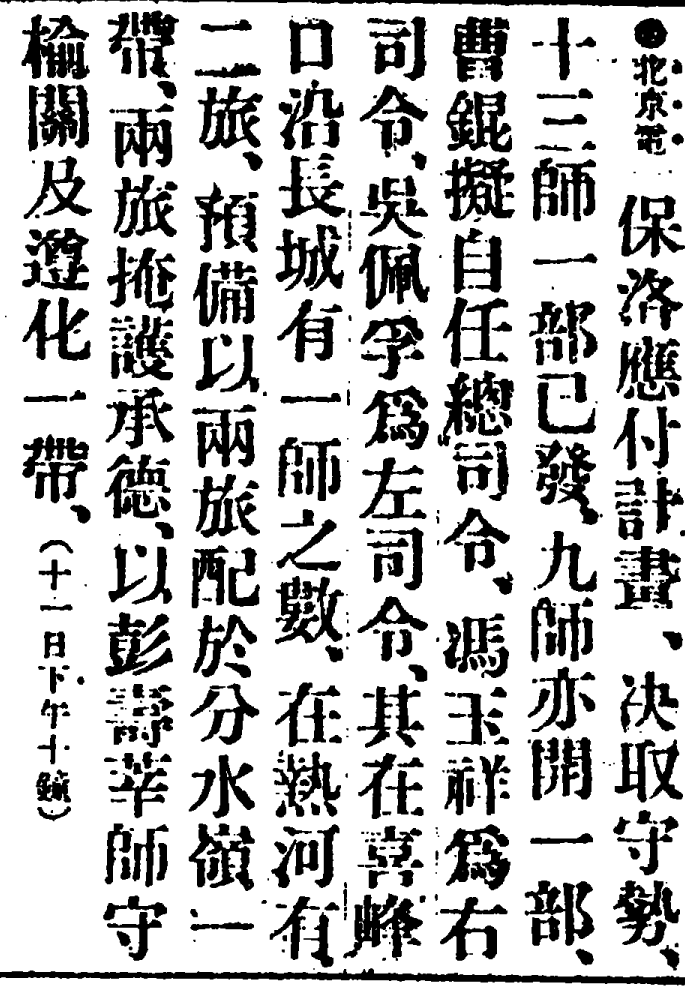 ●北京電　保洛應付計畫、決取守勢、
十三師一部已發、九師亦開一部、
曹錕擬自任總司令、馮玉祥爲右
司令、吳佩孚爲左司令、其在喜峰
口沿長城有一師之數、在熱河有
二旅、預備以兩旅配於分水嶺一
帶、兩旅掩護承德、以彭壽莘師守
榆關及遵化一帶、（十一日下午十鐘）